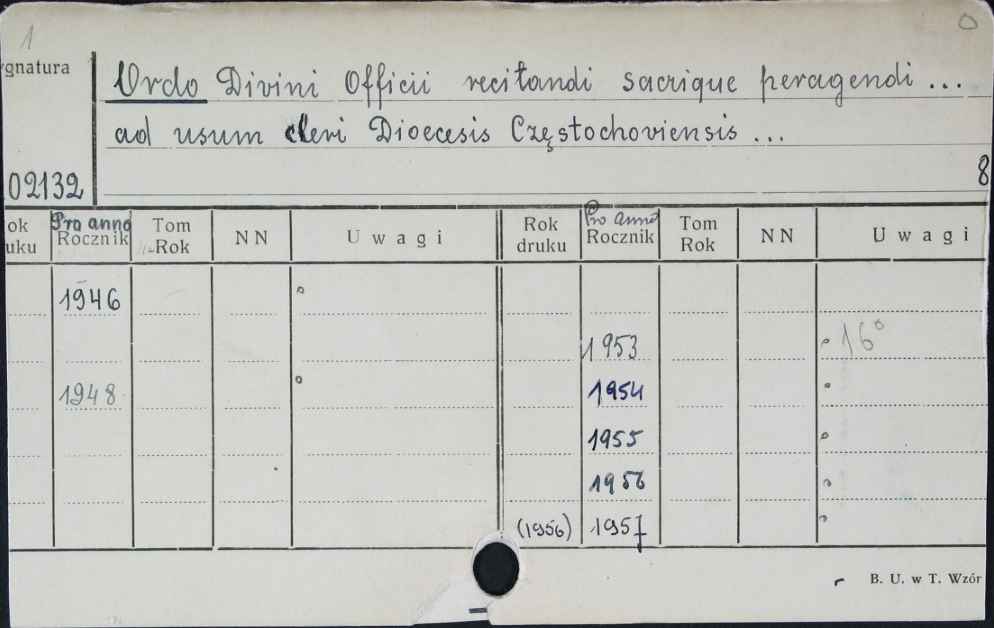 1 0
ygnatura
Ordo Divini Officii recitandi sacrique peragendi ...
ad usum cleri Dioecesis Częstochoviensis ...
02132 8
ok Pro anno Tom NN Uwagi Rok Pro anno Tom NN Uwagi
uku Rocznik Rok druku Rocznik Rok
1946
1953 16°
1948 1954
1955
1956
(1956) 1957
B. U. w T. Wzór